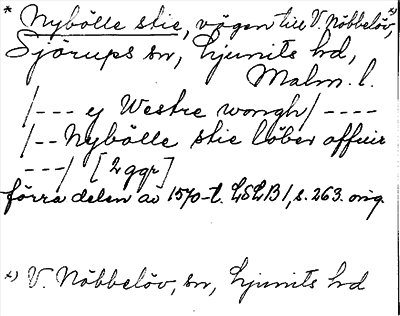 * Nybölle stie, vägen till V. Nöbbelöv, x)
Sjörups sn, Ljunits hd,
Malm. l.
/--- ej Westre wongh/ ----
/-- Nybölle stie löber offuer
---/ [2 ggr]
förra delen av 1570-t. LSLB1, s. 263. orig.
x) V. Nöbbelöv, sn, Ljunits hd